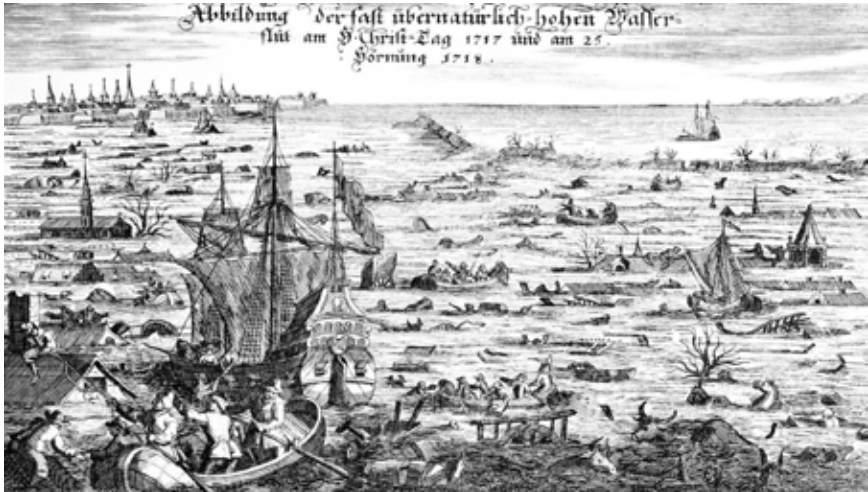 Abbildung der fast übernatürlich-hohen Wasser-
flut am H. Christ-Tag 1717 und am 25.
Hornung 1718.